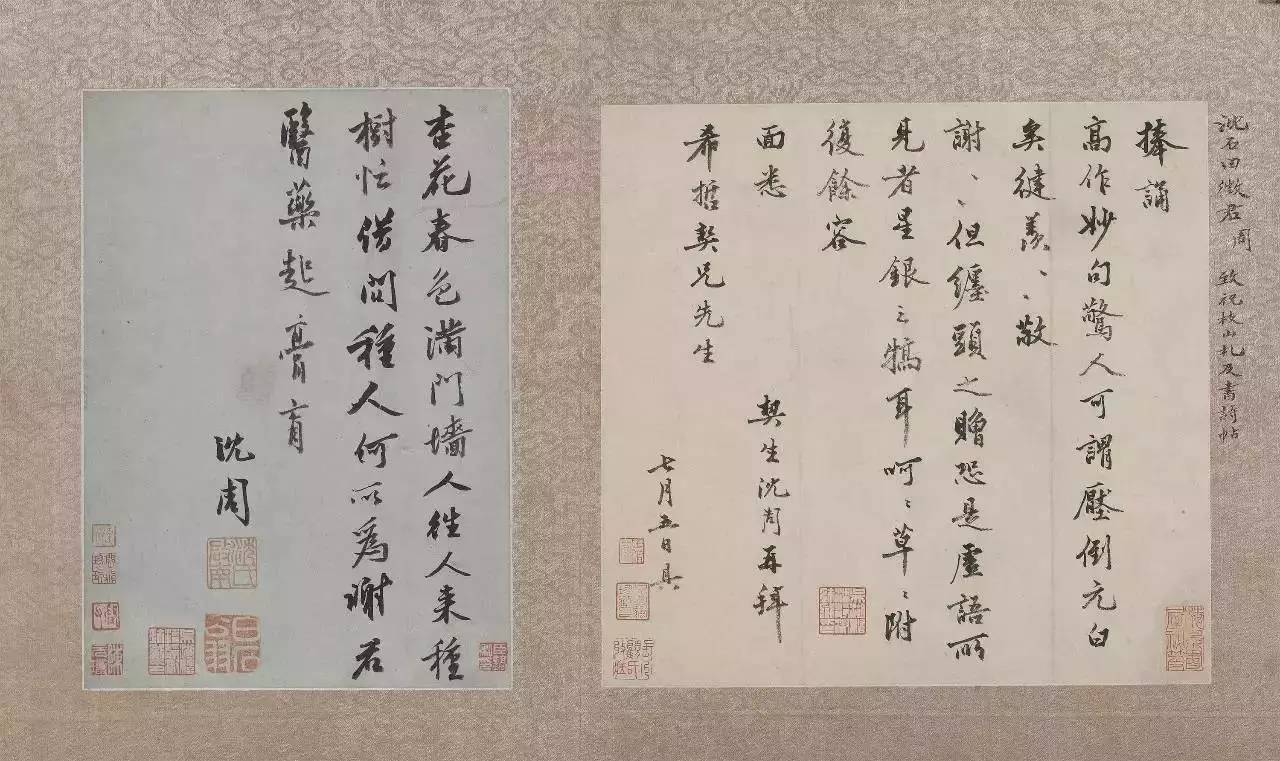 沈石田徵君周 致祝枝山札及書詩帖
捧誦
高作妙句驚人可謂壓倒元白
矣健羨、、敬
謝、、但纏頭之贈恐是虛語所
見者星銀之犒耳呵、、草、、附
復餘容
面悉
契生沈周再拜
希哲契兄先生
七月五日具
杏花春色滿門墻人往人来種
樹忙借問種人何所為謝君
醫藥起膏肓
沈周
沈氏啟南
白石翁